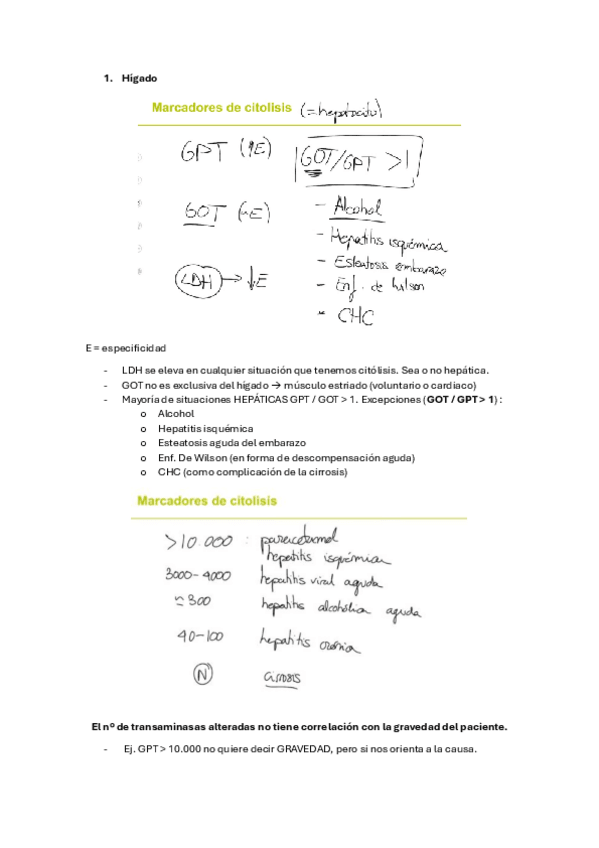 1. Hígado
Marcadores de citolisis (=hepatocito)
GPT (↑E)
GOT/GPT >1
GOT (~E)
- Alcohol
- Hepatitis isquémica
- Esteatosis embarazo
LDH → ↓E
- Enf. de Wilson
- CHC
E = especificidad
- LDH se eleva en cualquier situación que tenemos citólisis. Sea o no hepática.
- GOT no es exclusiva del hígado → músculo estriado (voluntario o cardiaco)
- Mayoría de situaciones HEPÁTICAS GPT / GOT > 1. Excepciones (GOT / GPT > 1) :
o Alcohol
o Hepatitis isquémica
o Esteatosis aguda del embarazo
o Enf. De Wilson (en forma de descompensación aguda)
o CHC (como complicación de la cirrosis)
Marcadores de citolisis
>10.000 : paracetamol
hepatitis isquémica
3000-4000 hepatitis viral aguda
≈300 hepatitis alcohólica aguda
40-100 hepatitis crónica
N cirrosis
El nº de transaminasas alteradas no tiene correlación con la gravedad del paciente.
- Ej. GPT > 10.000 no quiere decir GRAVEDAD, pero si nos orienta a la causa.